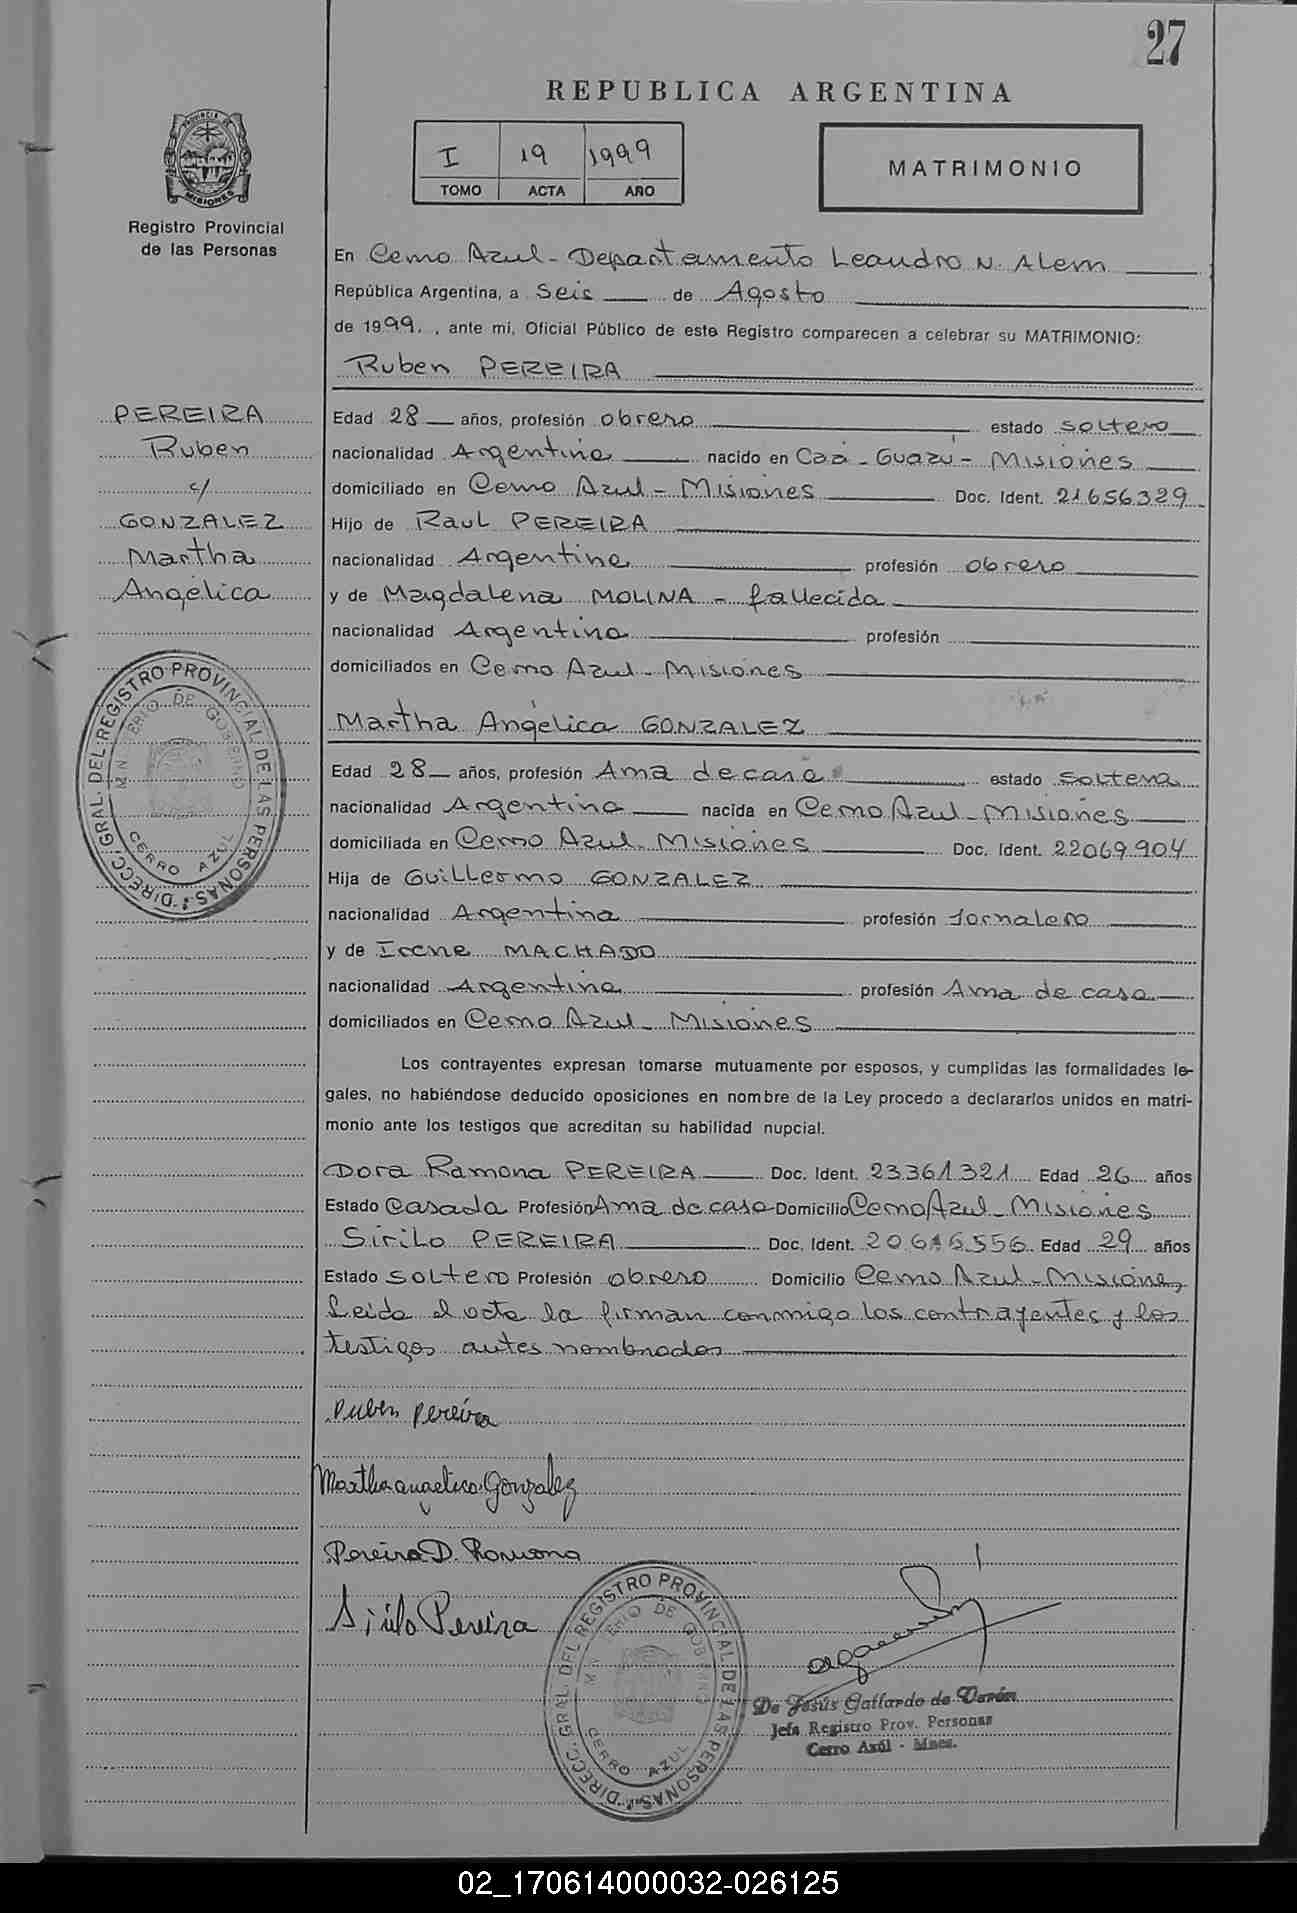 27
REPUBLICA ARGENTINA
PROVINCIA DE
MISIONES
Registro Provincial
de las Personas
I 19 1999
TOMO ACTA AÑO
MATRIMONIO
En Cerro Azul - Departamento Leandro N. Alem
República Argentina, a Seis de Agosto
de 1999, ante mi, Oficial Público de este Registro comparecen a celebrar su MATRIMONIO:
Ruben PEREIRA
PEREIRA
Ruben
c/
GONZALEZ
Martha
Angélica
Edad 28 años, profesión obrero estado soltero
nacionalidad Argentina nacido en Caá - Guazú - Misiones
domiciliado en Cerro Azul - Misiones Doc. Ident. 21656329
Hijo de Raul PEREIRA
nacionalidad Argentina profesión obrero
y de Magdalena MOLINA - fallecida
nacionalidad Argentina profesión
domiciliados en Cerro Azul - Misiones
Martha Angélica GONZALEZ
Edad 28 años, profesión Ama de casa estado soltera
nacionalidad Argentina nacida en Cerro Azul - Misiones
domiciliada en Cerro Azul - Misiones Doc. Ident. 22069904
Hija de Guillermo GONZALEZ
nacionalidad Argentina profesión Jornalero
y de Irene MACHADO
nacionalidad Argentina profesión Ama de casa
domiciliados en Cerro Azul - Misiones
DIRECC. GRAL. DEL REGISTRO PROVINCIAL DE LAS PERSONAS
MINISTERIO DE GOBIERNO
CERRO AZUL
Los contrayentes expresan tomarse mutuamente por esposos, y cumplidas las formalidades le-
gales, no habiéndose deducido oposiciones en nombre de la Ley procedo a declararlos unidos en matri-
monio ante los testigos que acreditan su habilidad nupcial.
Dora Ramona PEREIRA Doc. Ident. 23361321 Edad 26 años
Estado Casada Profesión Ama de casa Domicilio Cerro Azul - Misiones
Sirilo PEREIRA Doc. Ident. 20.616.556 Edad 29 años
Estado soltero Profesión obrero Domicilio Cerro Azul - Misiones
Leida el acta la firman conmigo los contrayentes y los
testigos antes nombrados
Ruben Pereira
Martha angelica Gonzalez
Pereira D. Ramona
Sirilo Pereira
DIRECC. GRAL. DEL REGISTRO PROVINCIAL DE LAS PERSONAS
MINISTERIO DE GOBIERNO
CERRO AZUL
De Jesús Gallardo de Verón
Jefa Registro Prov. Personas
Cerro Azúl - Mnes.
02_170614000032-026125